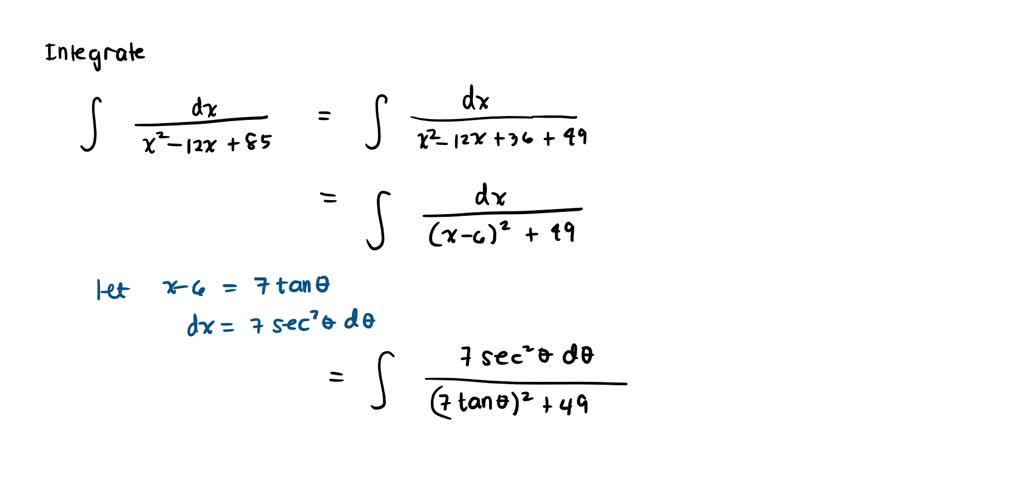 Integrate
∫ dx / (x² − 12x + 85) = ∫ dx / (x² − 12x + 36 + 49)
= ∫ dx / ((x−6)² + 49)
let x−6 = 7 tanθ
dx = 7 sec²θ dθ
= ∫ 7 sec²θ dθ / ((7 tanθ)² + 49)